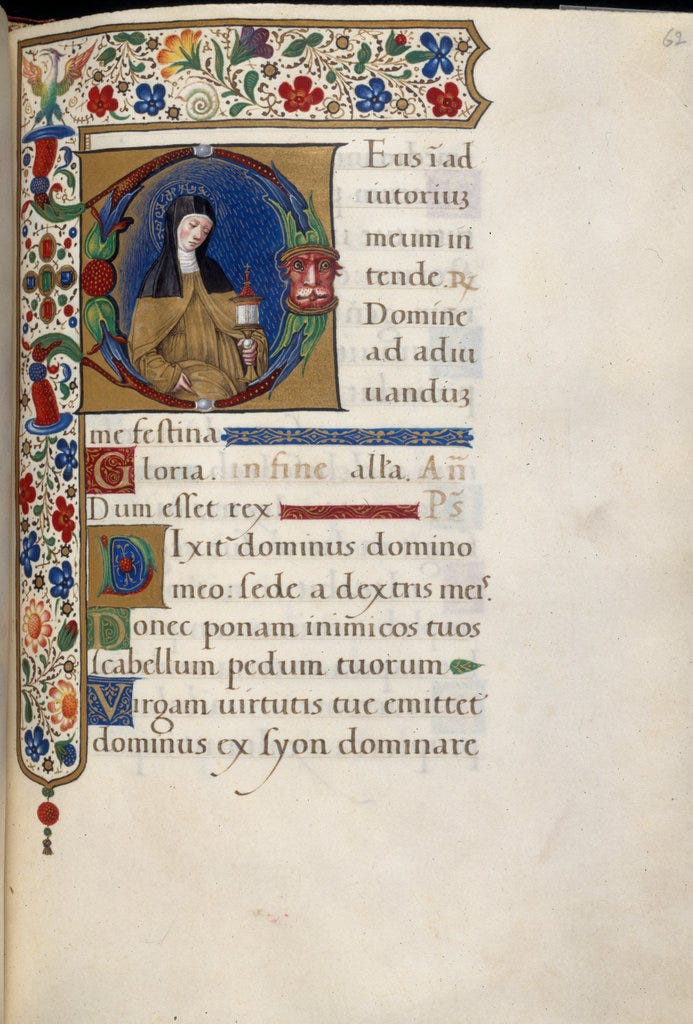 62
DEus ī ad
iutoriuꝫ
meum in
tende. ꝶ
Domine
ad adiu
uandiuꝫ
me festina
Gloria. in fine all'a. An̄
Dum esset rex Ps̄
DIxit dominus domino
meo: sede a dextris meis.
Donec ponam inimicos tuos
scabellum pedum tuorum
Virgam uirtutis tue emittet
dominus ex syon dominare